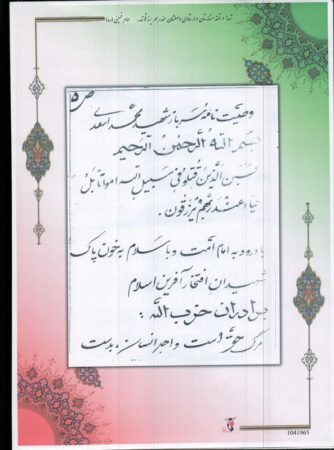 ص ۵
وصیت نامه سرباز شهید محمد اسعدی
بسم الله الرحمن الرحیم
الذین قتلوا فی سبیل الله امواتا بل
عند ربهم یرزقون.
با درود به امام امت و با سلام به خون پاک
شهیدان افتخار آفرین اسلام
برادران حزب الله:
مرگ حق است و اجر انسان، بدست
1041965